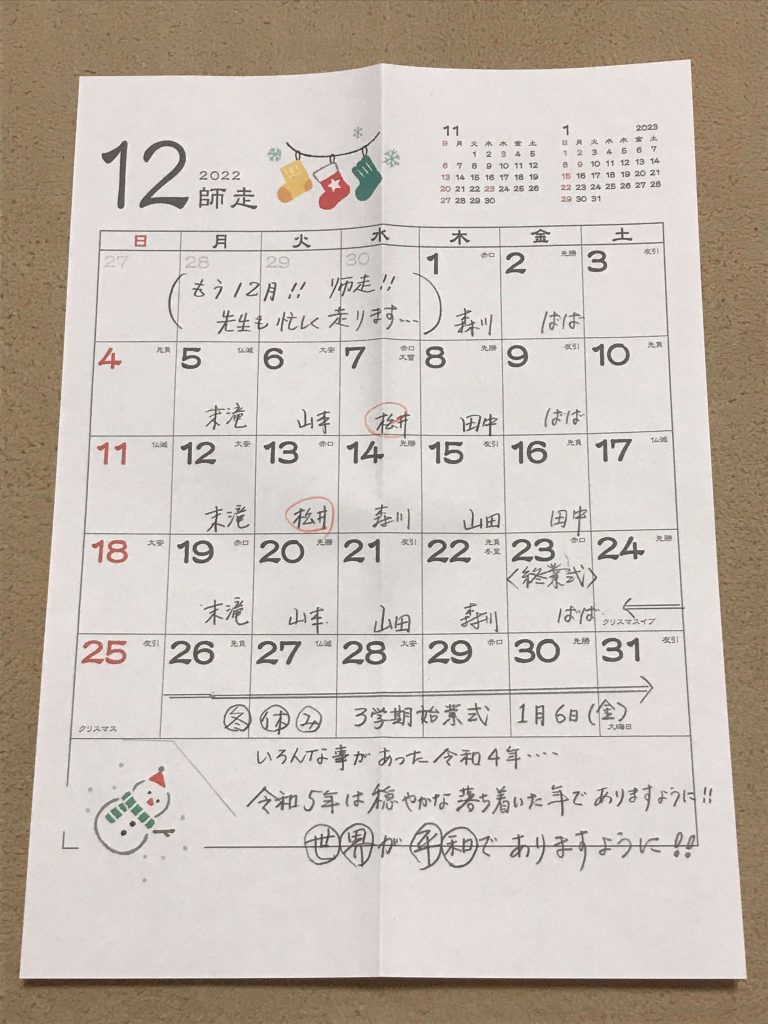 12 2022 師走
11
日 月 火 水 木 金 土
1 2 3 4 5
6 7 8 9 10 11 12
13 14 15 16 17 18 19
20 21 22 23 24 25 26
27 28 29 30
1 2023
日 月 火 水 木 金 土
1 2 3 4 5 6 7
8 9 10 11 12 13 14
15 16 17 18 19 20 21
22 23 24 25 26 27 28
29 30 31
日 月 火 水 木 金 土
27 28 29 30 1 赤口 2 先勝 3 友引
(もう12月!! 師走!!
先生も忙しく走ります…)
森川 はば
4 先負 5 仏滅 6 大安 7 赤口 大雪 8 先勝 9 友引 10 先負
末滝 山本 松井 田中 はば
11 仏滅 12 大安 13 赤口 14 先勝 15 友引 16 先負 17 仏滅
末滝 松井 森川 山田 田中
18 大安 19 赤口 20 先勝 21 友引 22 先負 冬至 23 赤口 24 先勝
<終業式>
末滝 山本 山田 森川 はば クリスマスイブ
25 友引 26 先負 27 仏滅 28 大安 29 赤口 30 先勝 31 友引
クリスマス 冬休み 3学期始業式 1月6日(金) 大晦日
いろんな事があった令和4年‥‥
令和5年は穏やかな落ち着いた年でありますように!!
世界が平和でありますように!!